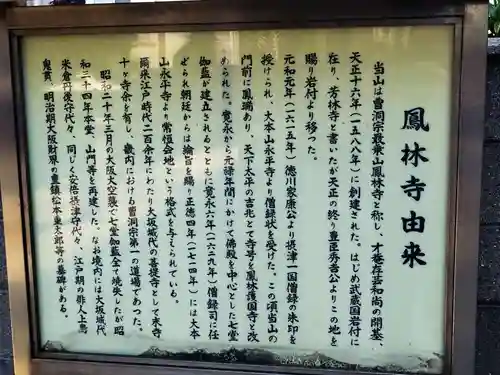 鳳林寺由来
当山は曹洞宗敢乗山鳳林寺と称し、才菴存芸和尚の開基、
天正十六年(一五八八年)に創建された。はじめ武蔵国岩付に
在り、芳林寺と書いたが天正の終り豊臣秀吉公よりこの地を
賜り岩付より移った。
元和元年(一六一五年)徳川家康公より摂津一国僧録の朱印を
授けられ、大本山永平寺より僧録状を受けた。この頃当山の
門前に鳳瑞あり、天下太平の吉兆とて寺号を鳳林護国寺と改
められた。寛永から元禄年間にかけて佛殿を中心とした七堂
伽藍が建立されるとともに寛永六年(一六二九年)僧録司に任
ぜられ朝廷からは綸旨を賜り正徳四年(一七一四年)には大本
山永平寺より常恒会地という格式を与えられている。
爾来江戸時代二百余年にわたり大坂城代の菩提寺として末寺
十ヶ寺余を有し、畿内における曹洞宗第一の道場であった。
昭和二十年三月の大阪大空襲で七堂伽藍全て焼失したが昭
和三十四年本堂、山門等を再建した。なお境内には大坂城代
米倉丹後守代々、同じく安倍摂津守代々、江戸期の俳人上島
鬼貫、明治期大阪財界の重鎮松本重太郎等の墓碑がある。